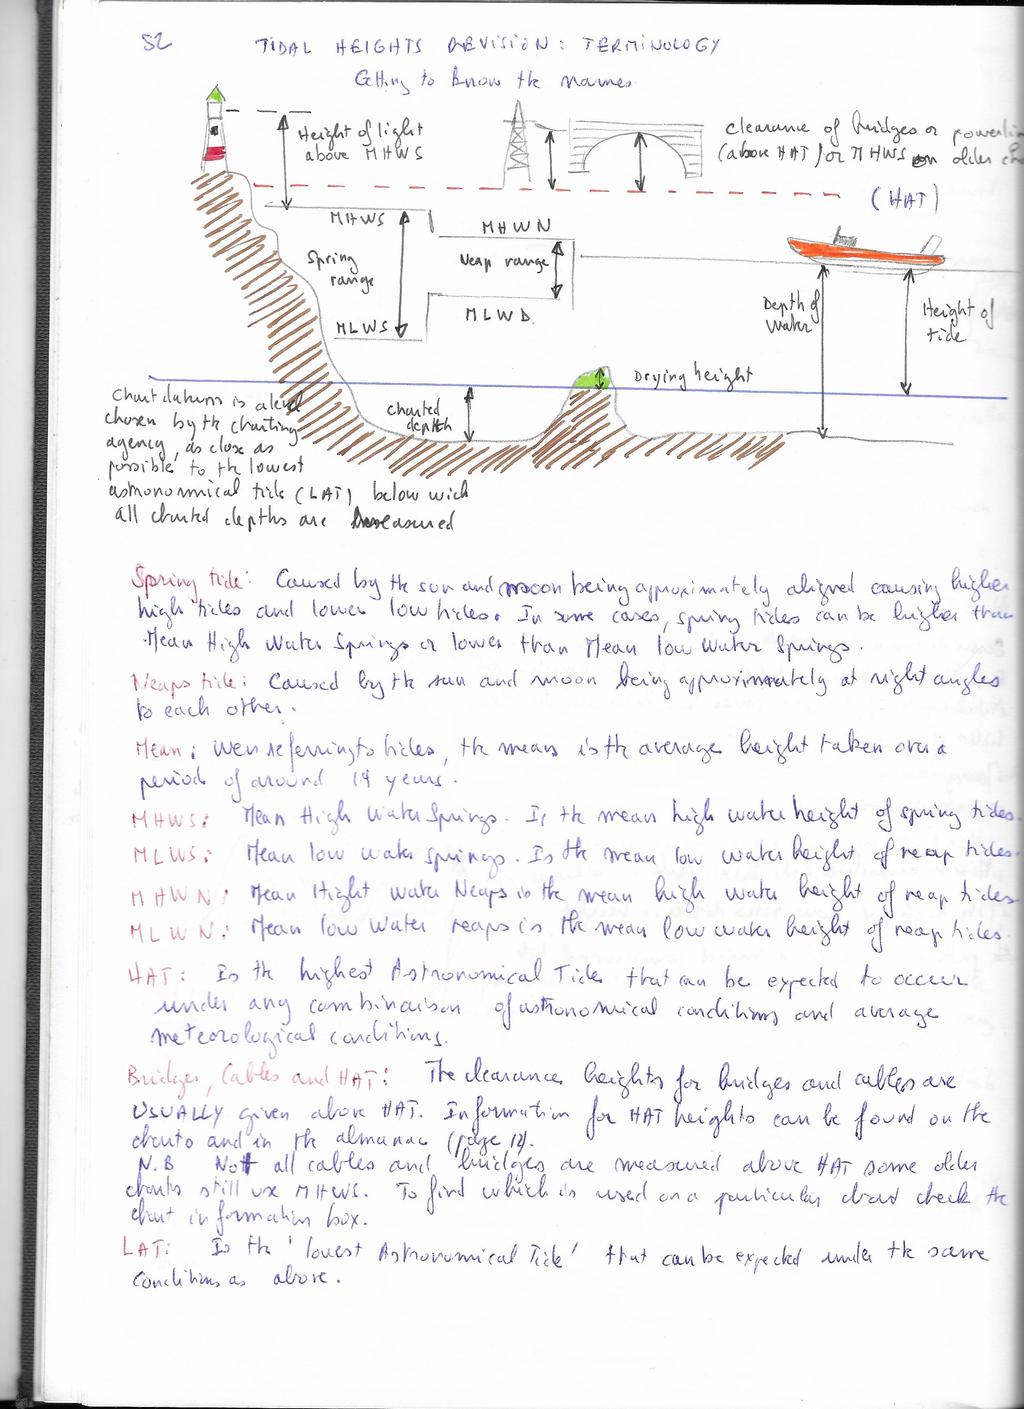 52 TIDAL HEIGHTS REVISION: TERMINOLOGY
Getting to know the names
Height of light
above MHWS
clearance of bridges or
(above HAT) or MHWS on older
(HAT)
MHWS
MHWN
Spring
range
Neap range
MLWS
MLWD
Depth of
water
Height of
tide
Drying height
Charted
depth
Chart datum is a level
chosen by the charting
agency, as close as
possible to the lowest
astronomical tide (LAT) below wich
all charted depths are measured
Spring tide: Caused by the sun and moon being approximately aligned causing higher
high tides and lower low tides. In some cases, spring tides can be higher than
Mean High Water Springs or lower than Mean low Water Springs.
Neaps tide: Caused by the sun and moon being approximately at right angles
to each other.
Mean: Wen referring to tides, the mean is the average height taken over a
period of around 19 years.
MHWS: Mean High Water Springs. Is the mean high water height of spring tides.
MLWS: Mean low water springs. Is the mean low water height of neap tides.
MHWN: Mean Hight water Neaps is the mean high water height of neap tides
MLWN: Mean low Water neaps is the mean low water height of neap tides.
HAT: Is the highest Astronomical Tide that can be expected to occur
under any combinaison of astronomical conditions and average
meteorological conditions.
Bridges, Cables and HAT: The clearance heights for bridges and cables are
USUALLY given above HAT. Information for HAT heights can be found on the
charts and in the almanac (page 12).
N.B Not all cables and bridges are measured above HAT some older
charts still use MHWS. To find which is used on a particular chart check the
chart information box.
LAT: Is the 'lowest Astronomical Tide' that can be expected under the same
conditions as above.